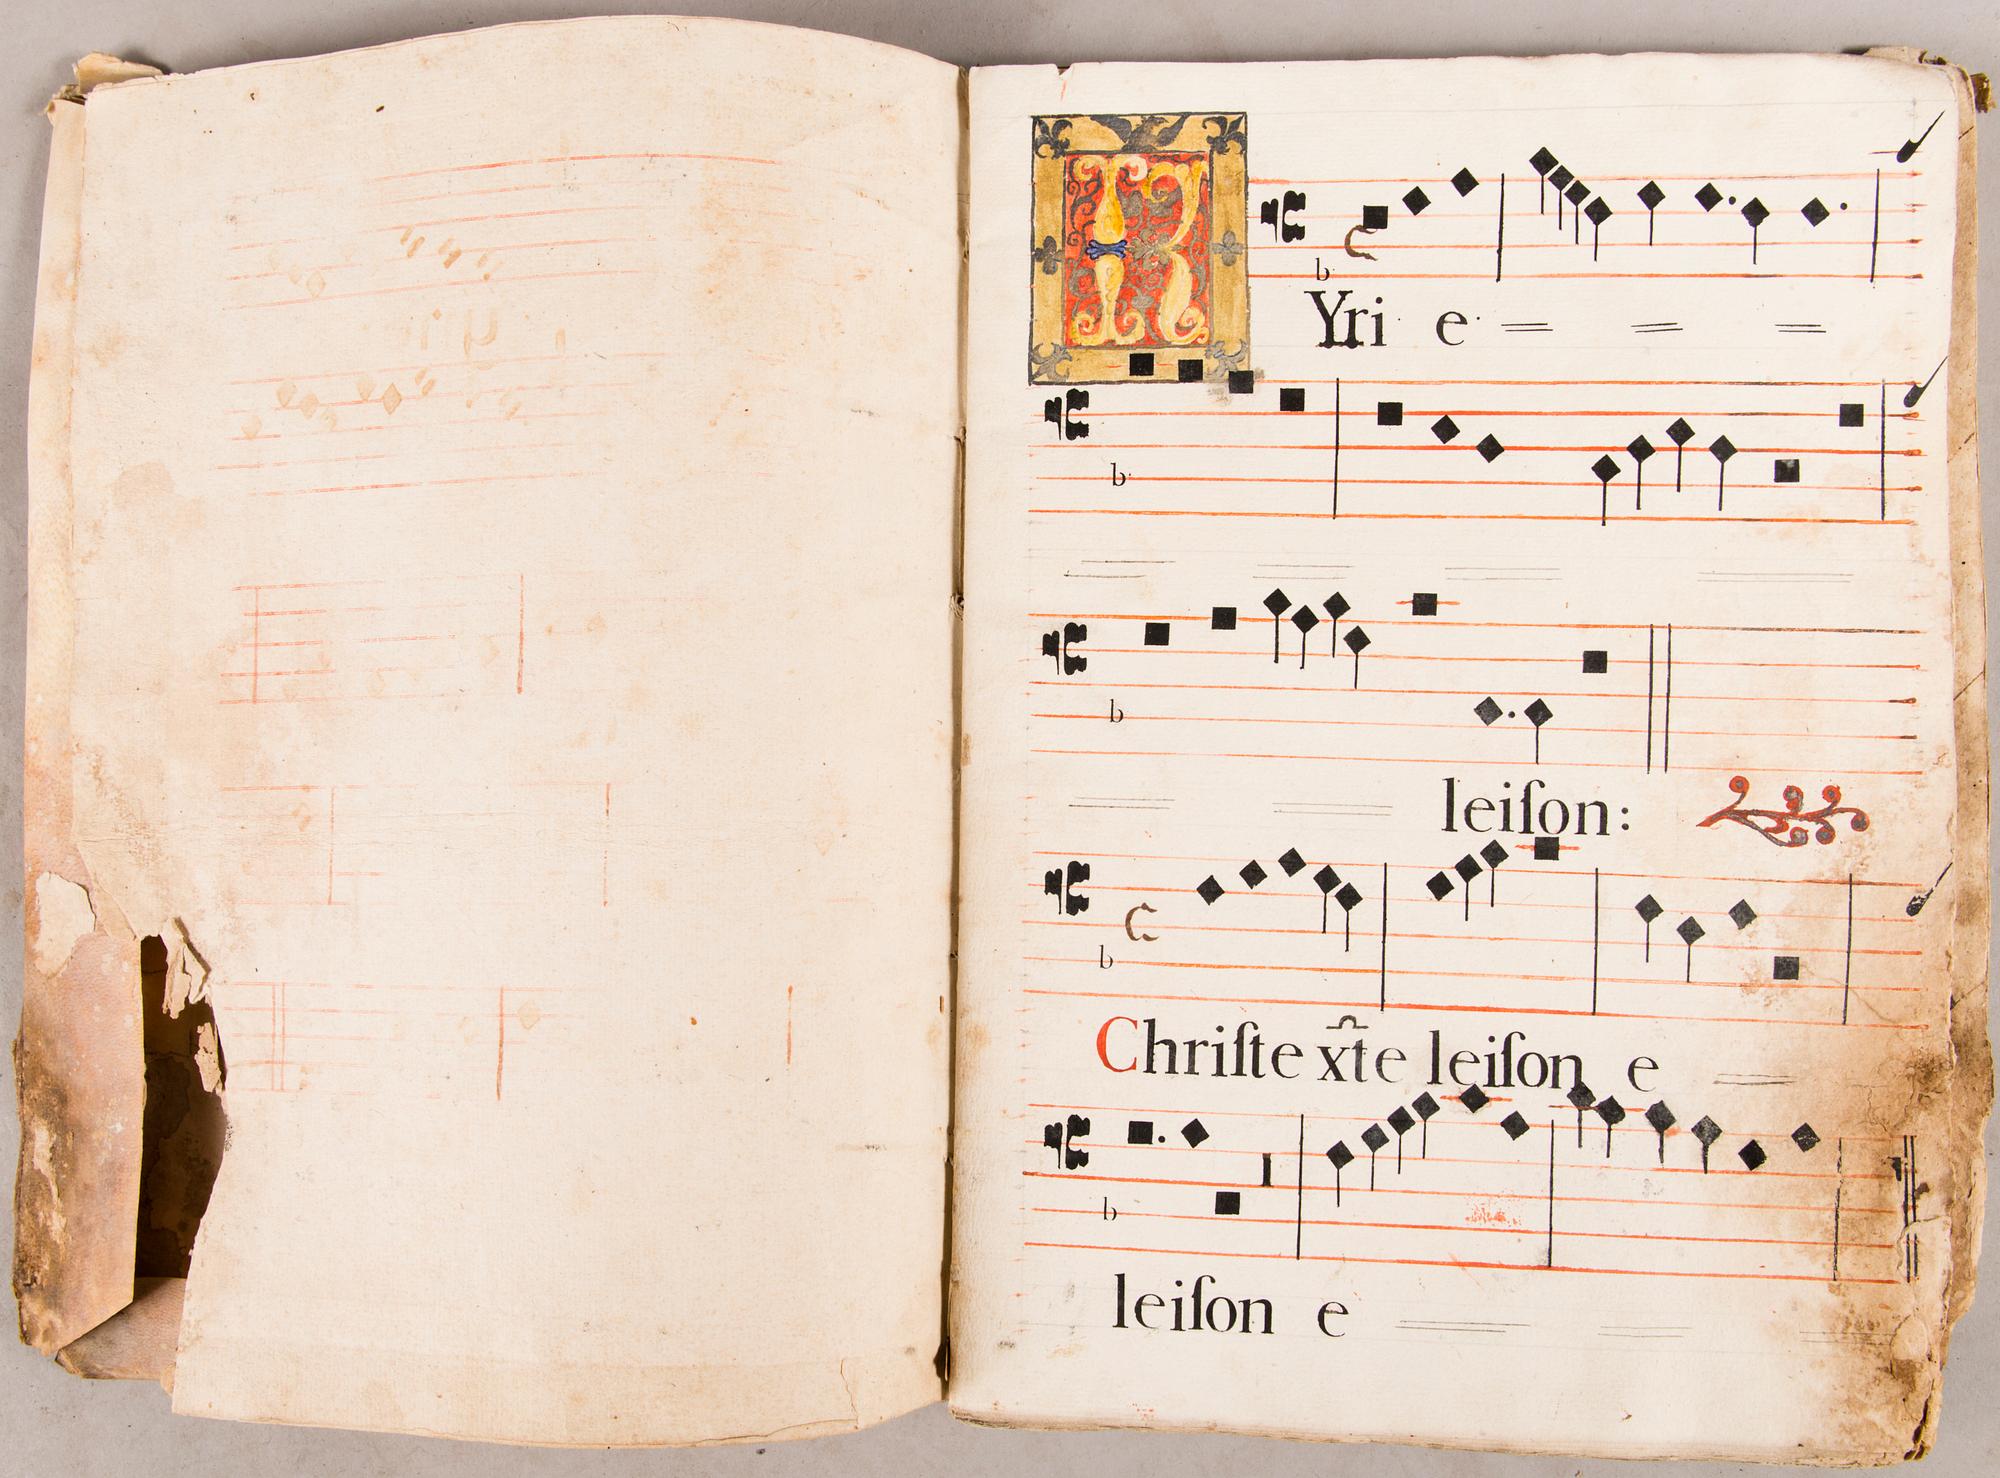 KYri e
leiſon:
Chriſte xt̄e leiſon e
leiſon e